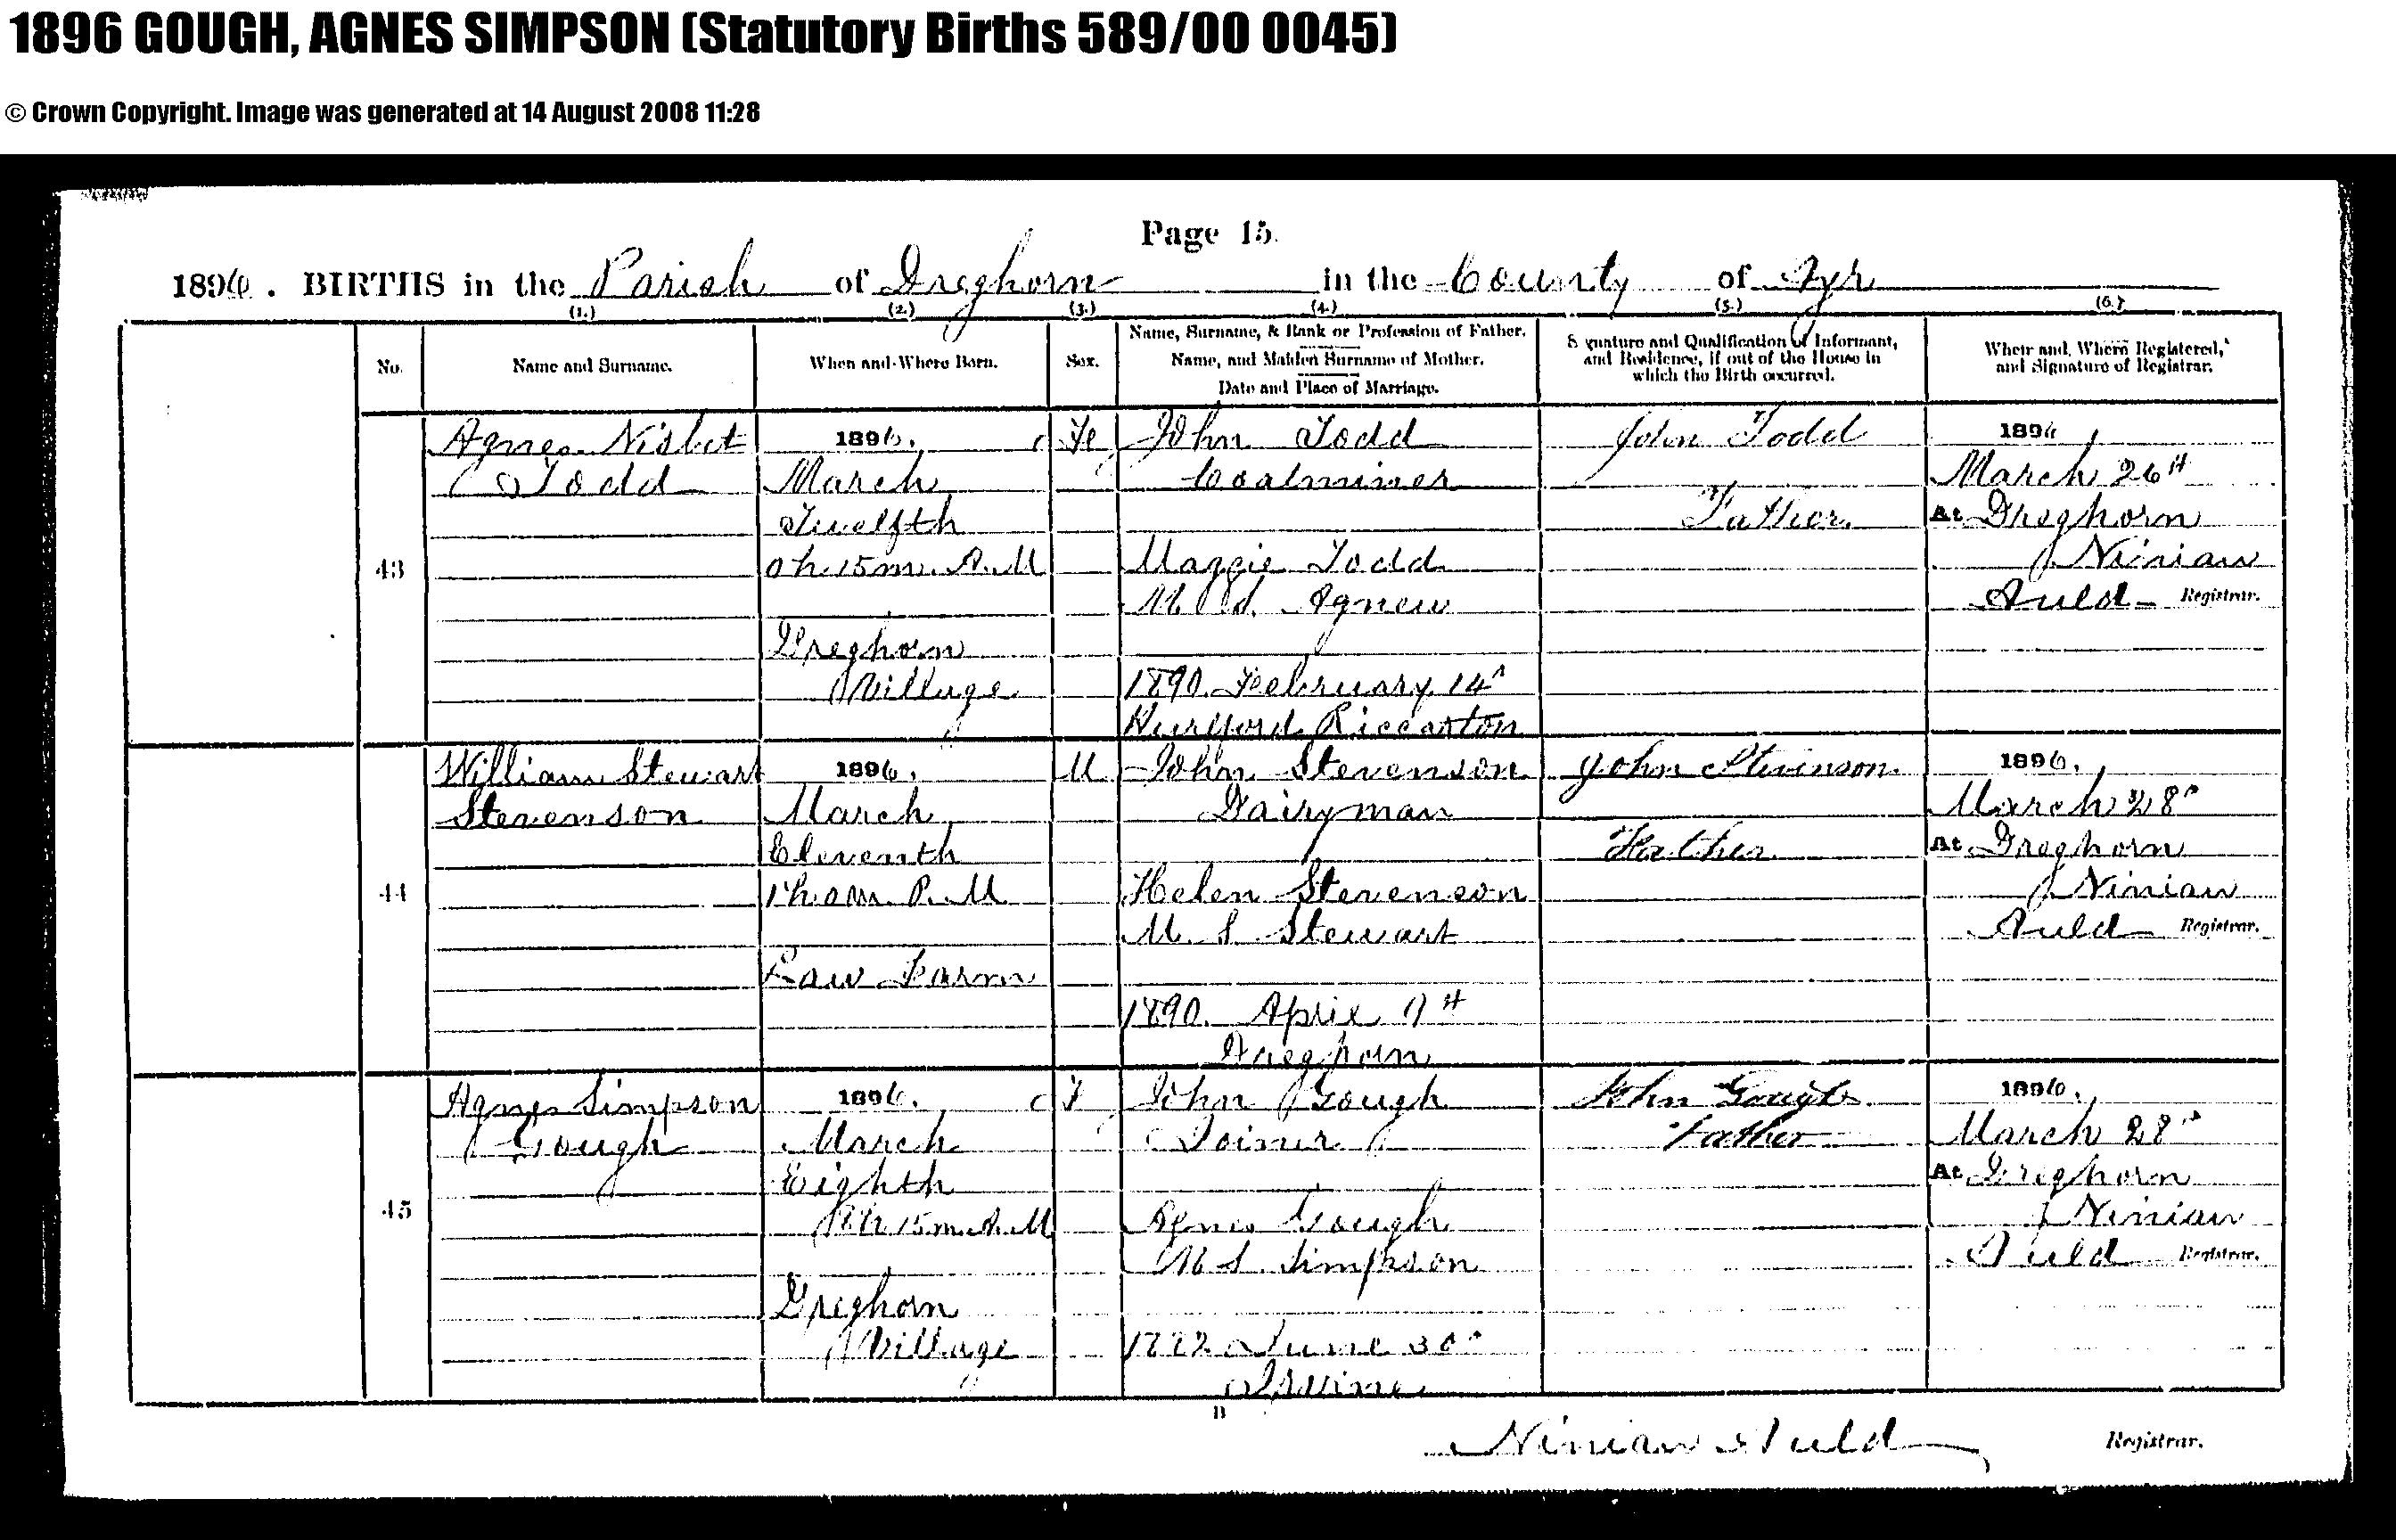 1896 GOUGH, AGNES SIMPSON (Statutory Births 589/00 0045)
© Crown Copyright. Image was generated at 14 August 2008 11:28
Page 15.
1896. BIRTHS in the Parish of Dreghorn in the County of Ayr
(1.) (2.) (3.) (4.) (5.) (6.)
No.
Name and Surname.
When and Where Born.
Sex.
Name, Surname, & Rank or Profession of Father.
Name, and Maiden Surname of Mother.
Date and Place of Marriage.
Signature and Qualification of Informant,
and Residence, if out of the House in
which the Birth occurred.
When and Where Registered,
and Signature of Registrar.
43
Agnes Nisbet
Todd
1896.
March
Twelfth
0h. 15m. A.M
Dreghorn
Village
Fe
John Todd
Coalminer
Maggie Todd
M.S. Agnew
1890. February 14th
Hurlford Riccarton
John Todd
Father
1896
March 26th
At Dreghorn
Ninian
Auld Registrar.
44
William Stewart
Stevenson
1896.
March
Eleventh
1h. 0m. P.M
Law Farm
M
John Stevenson
Dairyman
Helen Stevenson
M.S. Stewart
1890. April
Dreghorn
John Stevenson
Father
1896.
March 28th
At Dreghorn
Ninian
Auld Registrar.
45
Agnes Simpson
Gough
1896.
March
Eighth
15m. A.M
Dreghorn
Village
F
John Gough
Joiner
Agnes Gough
M.S. Simpson
June 30th
Irvine
John Gough
Father
1896.
March 28th
At Dreghorn
Ninian
Auld Registrar.
B
Ninian Auld Registrar.